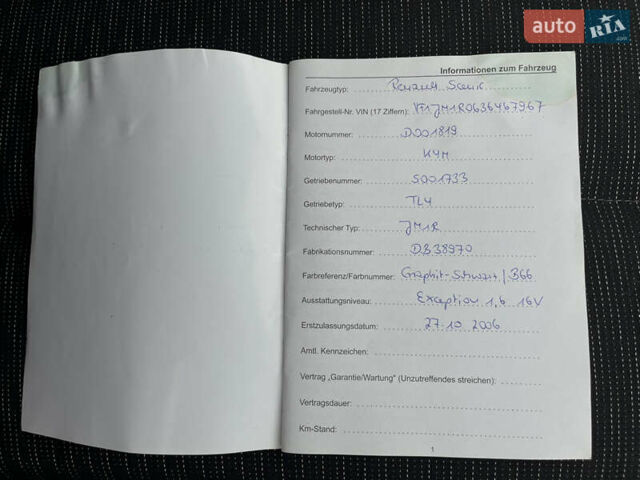 auto RIA.com
Informationen zum Fahrzeug
Fahrzeugtyp: Renault Scenic
Fahrgestell-Nr. VIN (17 Ziffern): VF1JM1R0636467967
Motornummer: D001819
Motortyp: K4M
Getriebenummer: S001733
Getriebetyp: TL4
Technischer Typ: JM1R
Fabrikationsnummer: D838970
Farbreferenz/Farbnummer: Graphit-Schwarz / B66
Ausstattungsniveau: Exception 1,6 16V
Erstzulassungsdatum: 27.10.2006
Amtl. Kennzeichen:
Vertrag „Garantie/Wartung" (Unzutreffendes streichen):
Vertragsdauer:
Km-Stand:
1